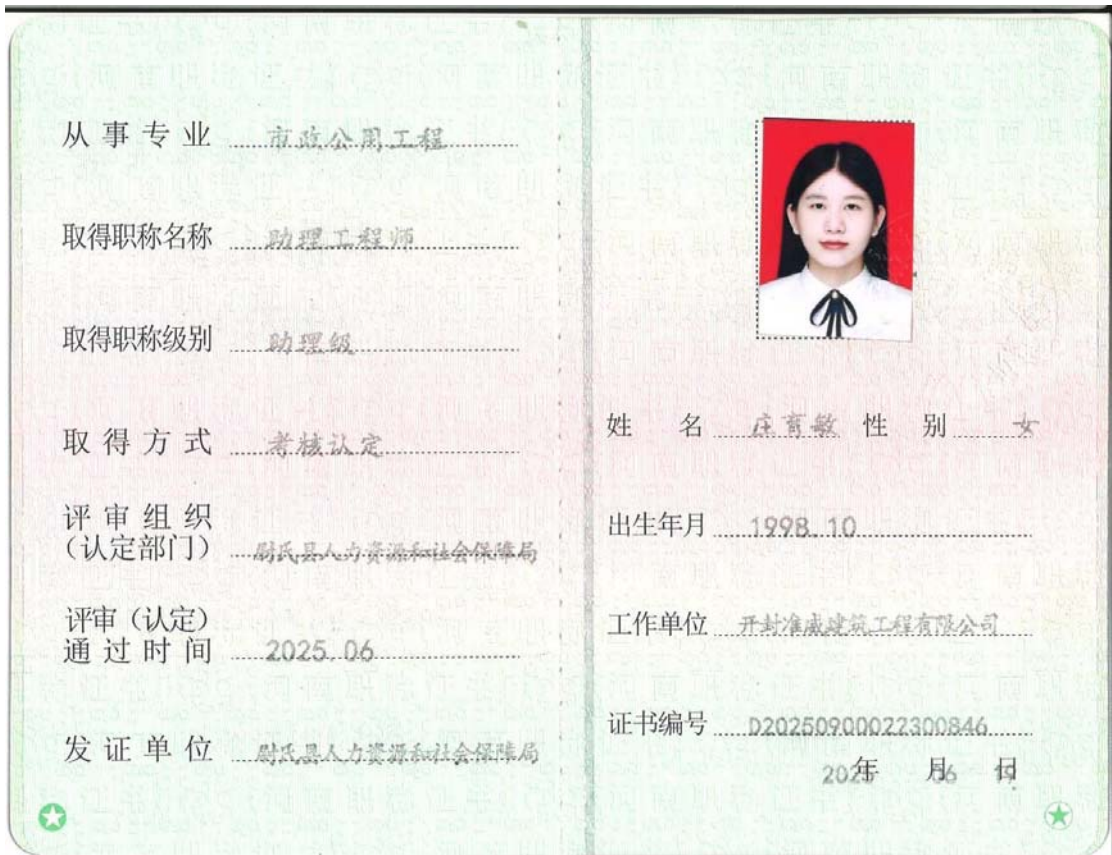 从事专业 市政公用工程
取得职称名称 助理工程师
取得职称级别 助理级
取得方式 考核认定
评审组织
（认定部门） 尉氏县人力资源和社会保障局
评审（认定）
通过时间 2025.06
发证单位 尉氏县人力资源和社会保障局
姓名 庄育敏 性别 女
出生年月 1998.10
工作单位 开封准威建筑工程有限公司
证书编号 D20250900022300846
2025年 06月 19日